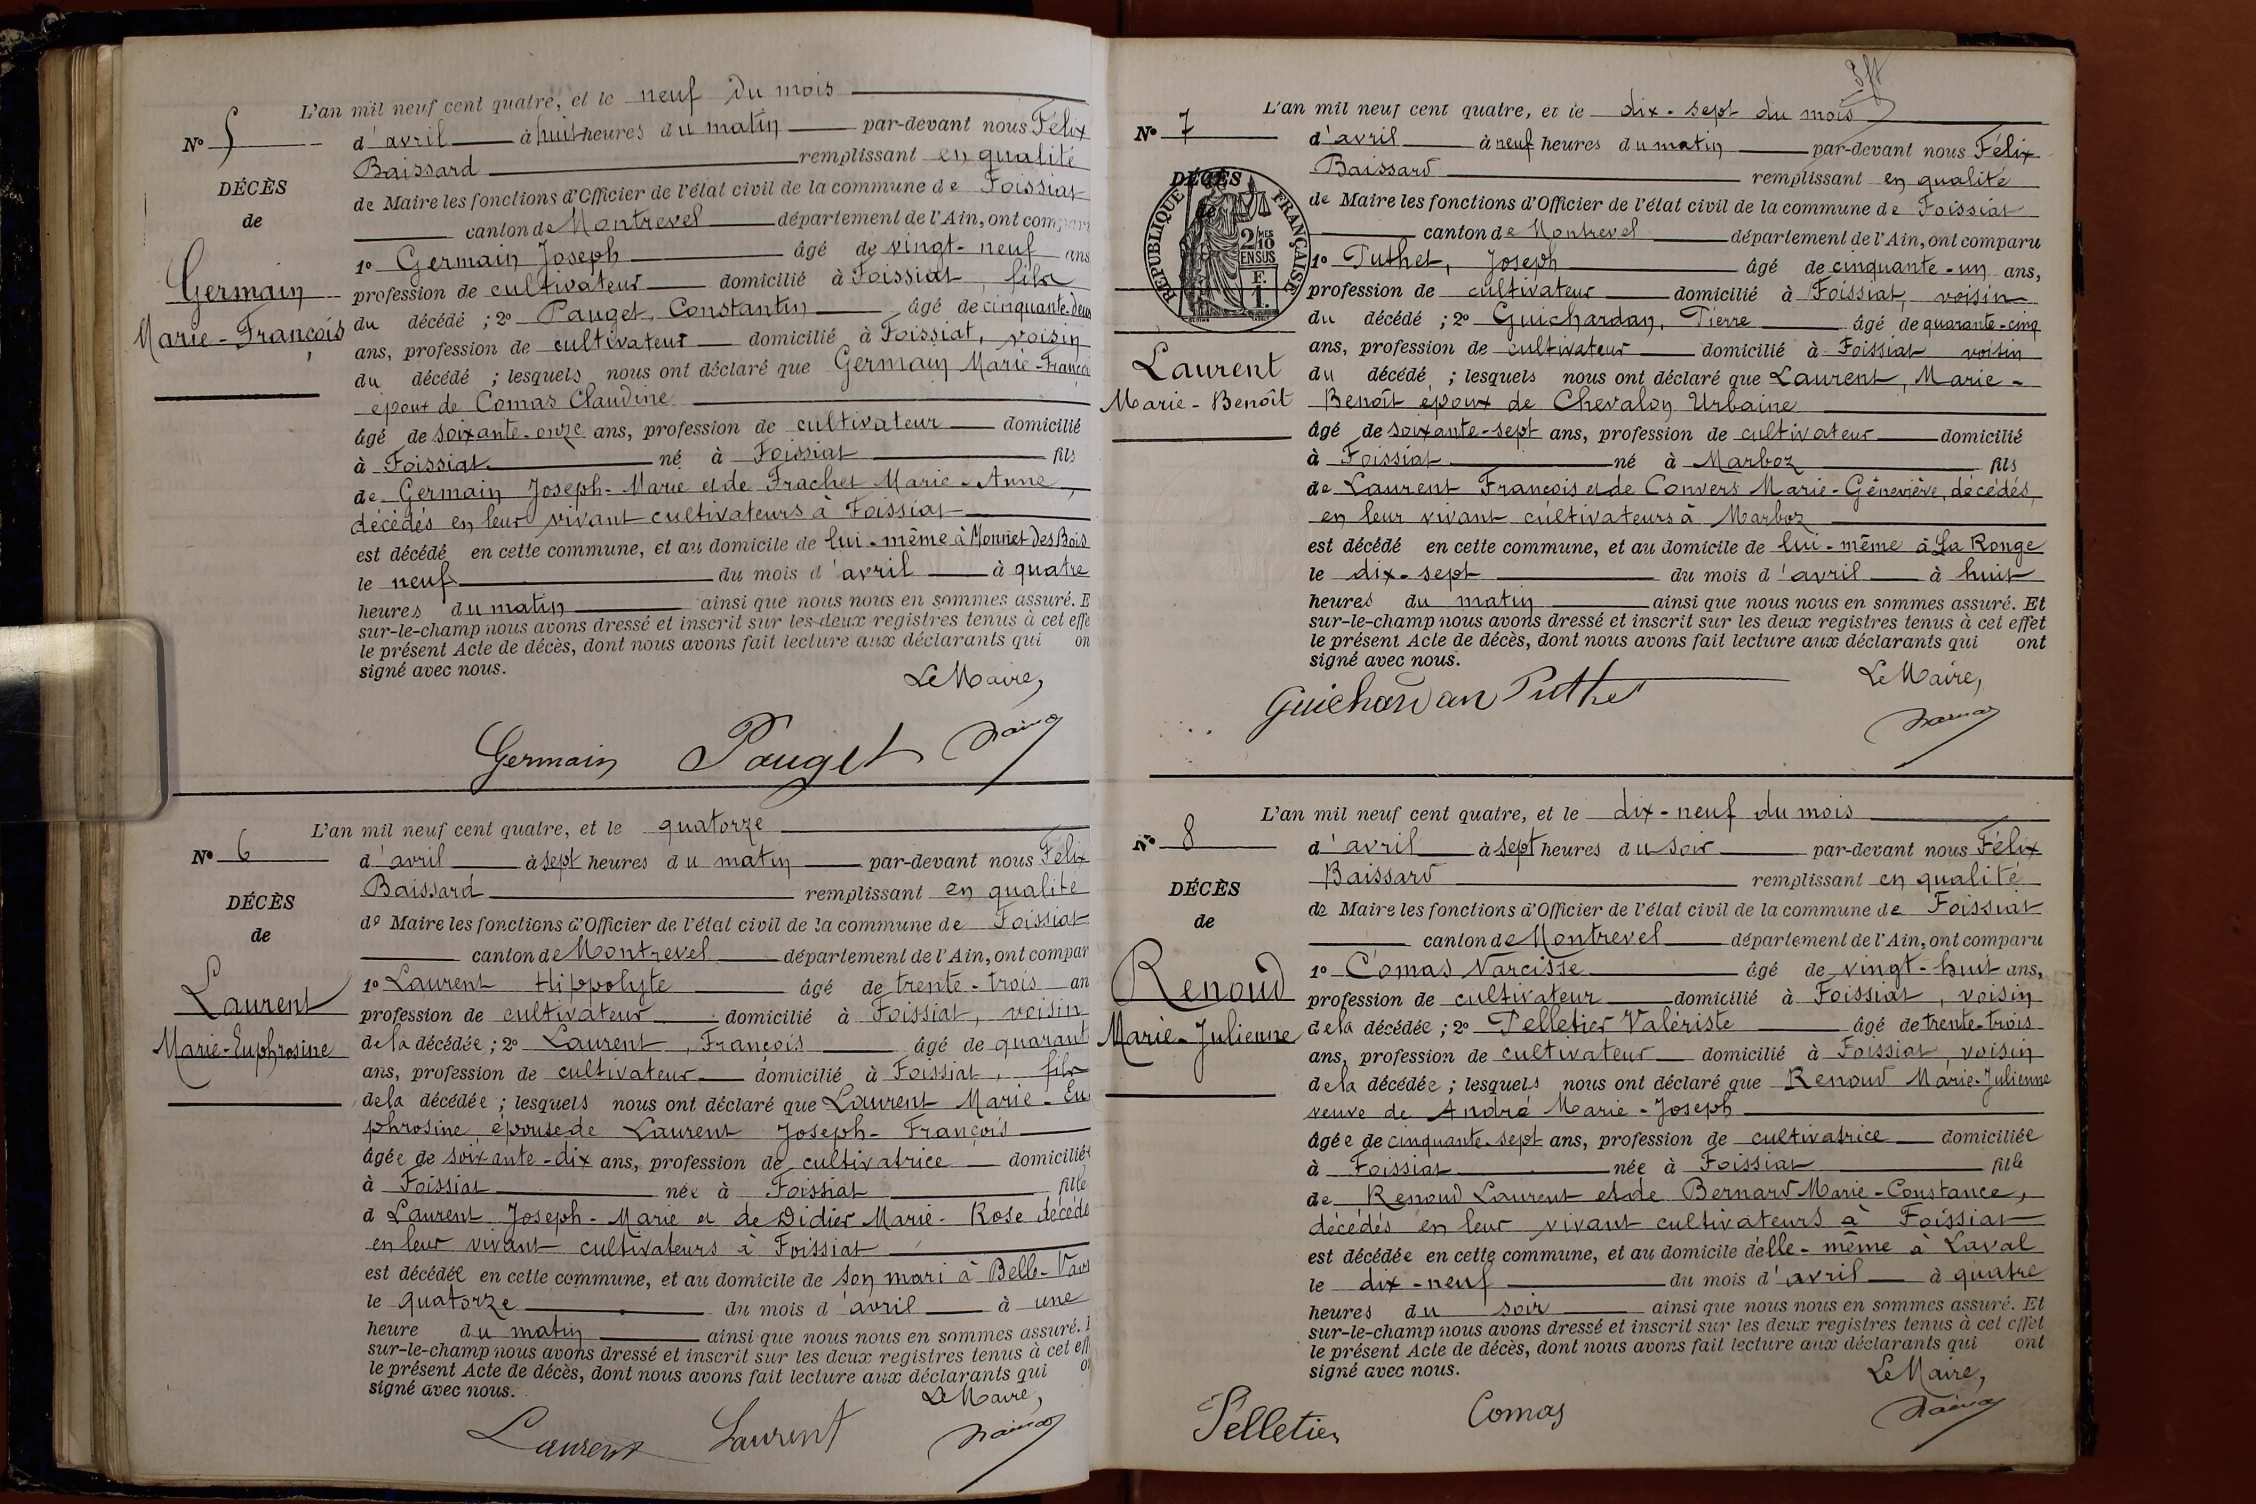 L'an mil neuf cent quatre, et le neuf du mois
N° 5
d'avril à huit heures du matin par-devant nous Félix
Baissard remplissant en qualité
DÉCÈS
de Maire les fonctions d'Officier de l'état civil de la commune de Foissiat
de
canton de Montrevel département de l'Ain, ont comparu
1° Germain Joseph âgé de vingt-neuf ans
Germain
profession de cultivateur domicilié à Foissiat, fils
Marie-François
du décédé ; 2° Pauget, Constantin âgé de cinquante-deux
ans, profession de cultivateur domicilié à Foissiat, voisin
du décédé ; lesquels nous ont déclaré que Germain Marie-Franço
époux de Comas Claudine
âgé de soixante-onze ans, profession de cultivateur domicilié
à Foissiat né à Foissiat fils
de Germain Joseph-Marie et de Frachet Marie-Anne,
décédés en leur vivant cultivateurs à Foissiat
est décédé en cette commune, et au domicile de lui-même à Monnet des Bois
le neuf du mois d'avril à quatre
heures du matin ainsi que nous nous en sommes assuré. E
sur-le-champ nous avons dressé et inscrit sur les deux registres tenus à cet effe
le présent Acte de décès, dont nous avons fait lecture aux déclarants qui on
signé avec nous.
Le Maire,
Germain Pauget
L'an mil neuf cent quatre, et le quatorze
N° 6
d'avril à sept heures du matin par-devant nous Félix
Baissard remplissant en qualité
DÉCÈS
de Maire les fonctions d'Officier de l'état civil de la commune de Foissiat
de
canton de Montrevel département de l'Ain, ont compar
1° Laurent Hippolyte âgé de trente-trois an
Laurent
profession de cultivateur domicilié à Foissiat, voisin
Marie-Euphrosine
de la décédée ; 2° Laurent, François âgé de quarant
ans, profession de cultivateur domicilié à Foissiat, fils
de la décédée ; lesquels nous ont déclaré que Laurent Marie-Eu
phrosine, épouse de Laurent Joseph-François
âgée de soixante-dix ans, profession de cultivatrice domiciliée
à Foissiat née à Foissiat fille
d Laurent Joseph-Marie et de Didier Marie-Rose décédé
en leur vivant cultivateurs à Foissiat
est décédée en cette commune, et au domicile de son mari à Belle-Vav
le quatorze du mois d'avril à une
heure du matin ainsi que nous nous en sommes assuré. E
sur-le-champ nous avons dressé et inscrit sur les deux registres tenus à cet eff
le présent Acte de décès, dont nous avons fait lecture aux déclarants qui on
signé avec nous.
Le Maire,
Laurent Laurent
L'an mil neuf cent quatre, et le dix-sept du mois
N° 7
d'avril à neuf heures du matin par-devant nous Félix
Baissard remplissant en qualité
DÉCÈS
de Maire les fonctions d'Officier de l'état civil de la commune de Foissiat
de
RÉPUBLIQUE FRANÇAISE
2 MES
10
EN SUS
F.
1.
canton de Montrevel département de l'Ain, ont comparu
1° Puthet, Joseph âgé de cinquante-un ans,
profession de cultivateur domicilié à Foissiat, voisin
du décédé ; 2° Guichardan, Pierre âgé de quarante-cinq
ans, profession de cultivateur domicilié à Foissiat voisin
Laurent
du décédé ; lesquels nous ont déclaré que Laurent, Marie-
Marie-Benoît
Benoît époux de Chevalon Urbaine
âgé de soixante-sept ans, profession de cultivateur domicilié
à Foissiat né à Marboz fils
de Laurent François et de Convers Marie-Géneviève, décédés,
en leur vivant cultivateurs à Marboz
est décédé en cette commune, et au domicile de lui-même à La Ronge
le dix-sept du mois d'avril à huit
heures du matin ainsi que nous nous en sommes assuré. Et
sur-le-champ nous avons dressé et inscrit sur les deux registres tenus à cet effet
le présent Acte de décès, dont nous avons fait lecture aux déclarants qui ont
signé avec nous.
Le Maire,
Guichardan Puthet
L'an mil neuf cent quatre, et le dix-neuf du mois
N° 8
d'avril à sept heures du soir par-devant nous Félix
Baissard remplissant en qualité
DÉCÈS
de Maire les fonctions d'Officier de l'état civil de la commune de Foissiat
de
canton de Montrevel département de l'Ain, ont comparu
1° Comas Narcisse âgé de vingt-huit ans,
Renoud
profession de cultivateur domicilié à Foissiat, voisin
Marie-Julienne
de la décédée ; 2° Pelletier Valériste âgé de trente-trois
ans, profession de cultivateur domicilié à Foissiat, voisin
de la décédée ; lesquels nous ont déclaré que Renoud Marie-Julienne
veuve de André Marie-Joseph
âgée de cinquante-sept ans, profession de cultivatrice domiciliée
à Foissiat née à Foissiat fille
de Renoud Laurent et de Bernard Marie-Constance,
décédés en leur vivant cultivateurs à Foissiat
est décédée en cette commune, et au domicile d'elle-même à Laval
le dix-neuf du mois d'avril à quatre
heures du soir ainsi que nous nous en sommes assuré. Et
sur-le-champ nous avons dressé et inscrit sur les deux registres tenus à cet effet
le présent Acte de décès, dont nous avons fait lecture aux déclarants qui ont
signé avec nous.
Le Maire,
Pelletier Comas